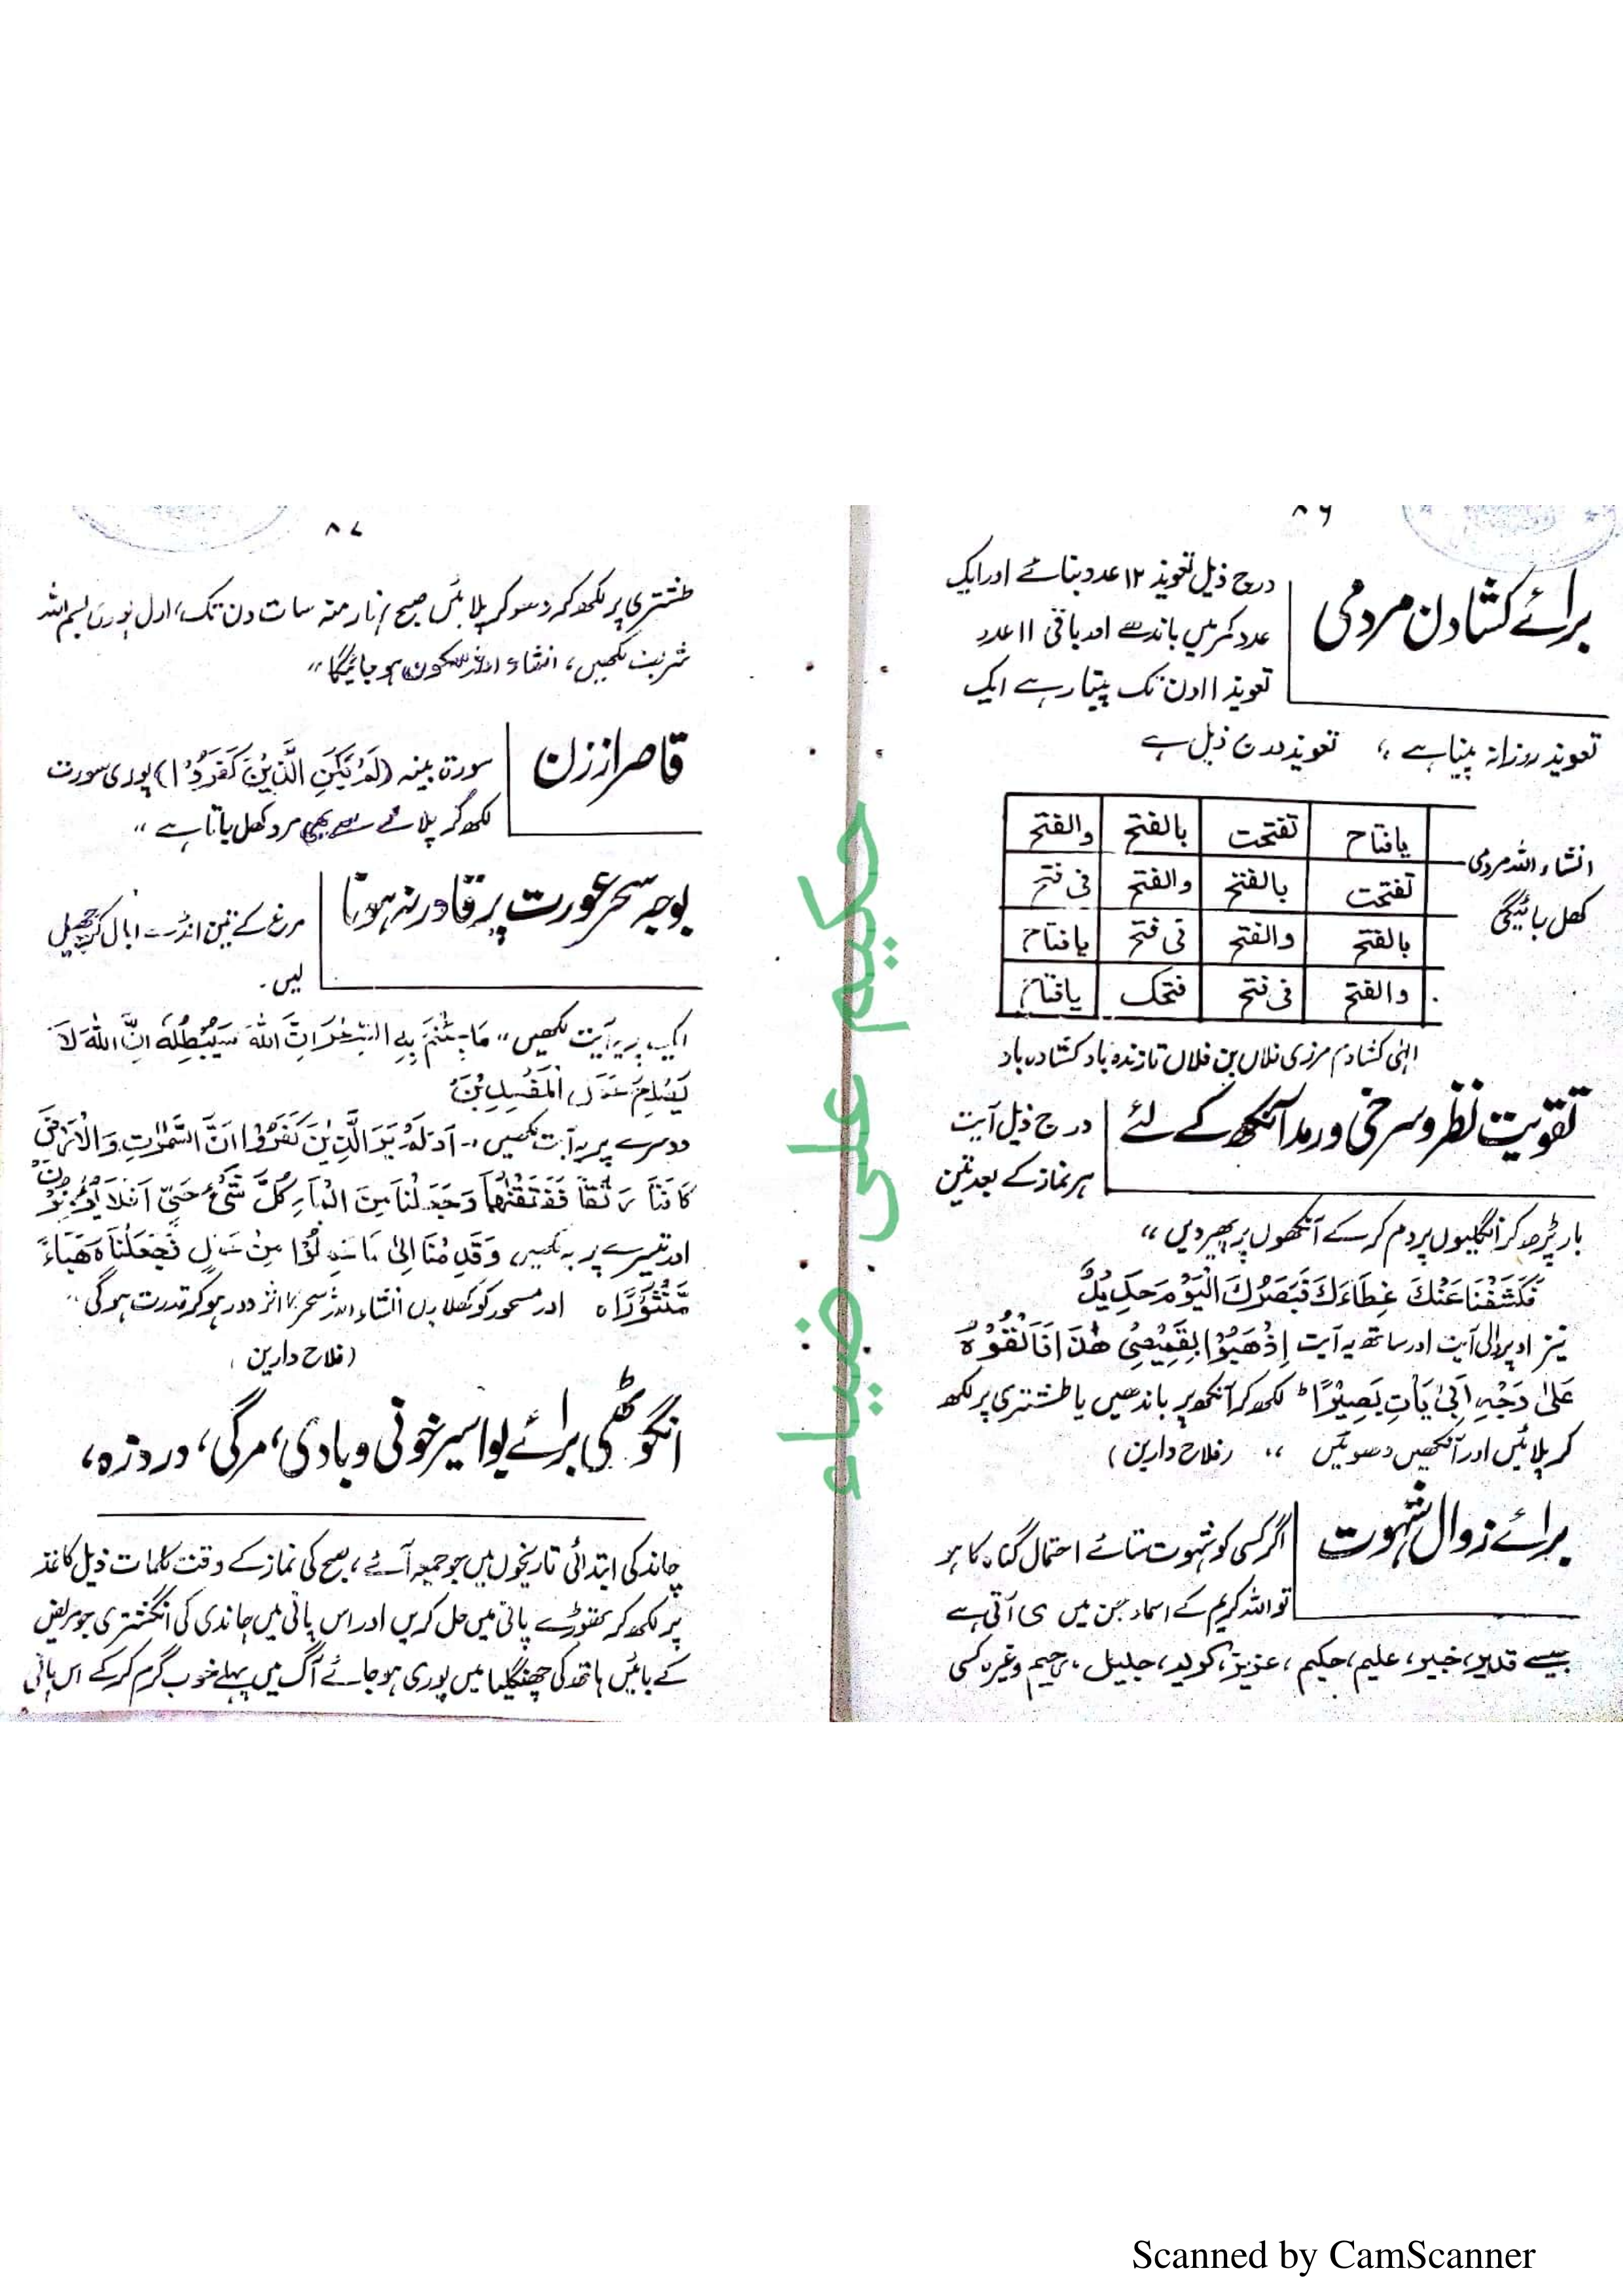 ۸۶
برائے کشادن مردمی
درج ذیل تعویذ ۱۲ عدد بنائے اور ایک
عدد کمر میں باندھے اور باقی ۱۱ عدد
تعویذ ۱۱ دن تک پیتا رہے ایک
تعویذ روزانہ پینا ہے ،، تعویذ درج ذیل ہے
یافتاح تفتحت بالفتح والفتح
تفتحت بالفتح والفتح فی فتح
بالفتح والفتح فی فتح یافتاح
والفتح فی فتح فتحک یافتاح
انشاء اللہ مردمی
کھل جائیگی
الٰہی کشادم مرزی فلاں بن فلاں تا زندہ باد کشادہ باد
تقویت نظر و سرخی و رمد آنکھ کے لئے
درج ذیل آیت
ہر نماز کے بعد تین
بار پڑھ کر انگلیوں پر دم کر کے آنکھوں پر پھیر دیں ،،
فَكَشَفْنَا عَنْكَ غِطَاءَكَ فَبَصَرُكَ الْيَوْمَ حَدِيْدٌ
نیز اوپر والی آیت اور ساتھ یہ آیت اِذْهَبُوْا بِقَمِيْصِیْ هٰذَا فَاَلْقُوْهُ
عَلٰی وَجْهِ اَبِیْ يَاْتِ بَصِيْرًا لکھ کر آنکھ پر باندھیں یا طشتری پر لکھ
کر پلائیں اور آنکھیں دھوئیں ،، (فلاح دارین)
برائے زوال شہوت
اگر کسی کو شہوت ستائے احتمال گناہ کا ہو
تو اللہ کریم کے اسماء جن میں ی آتی ہے
جیسے قدیر، خبیر، علیم، حکیم، عزیز، جلیل، رحیم وغیرہ کسی
۸۷
طشتری پر لکھ کر دھو کر پلائیں صبح نہار منہ سات دن تک، اول پوری بسم اللہ
شریف لکھیں، انشاء اللہ سکون ہو جائیگا ،،
قاصر از زن
سورۃ بینہ (لَمْ يَكُنِ الَّذِيْنَ كَفَرُوْا) پوری سورت
لکھ کر پلانے سے بھی مرد کھل جاتا ہے ،،
بوجہ سحر عورت پر قادر نہ ہونا
مرغ کے تین انڈے ابال کر چھیل
لیں۔
ایک پر یہ آیت لکھیں ،، مَا جِئْتُمْ بِهِ السِّحْرُ اِنَّ اللّٰهَ سَيُبْطِلُهٗ اِنَّ اللّٰهَ لَا
يُصْلِحُ عَمَلَ الْمُفْسِدِيْنَ
دوسرے پر یہ آیت لکھیں :- اَوَلَمْ يَرَ الَّذِيْنَ كَفَرُوْا اَنَّ السَّمٰوٰتِ وَالْاَرْضَ
كَانَتَا رَتْقًا فَفَتَقْنٰهُمَا وَجَعَلْنَا مِنَ الْمَاءِ كُلَّ شَیْءٍ حَیٍّ اَفَلَا يُؤْمِنُوْنَ
اور تیسرے پر یہ لکھیں وَقَدِمْنَا اِلٰی مَا عَمِلُوْا مِنْ عَمَلٍ فَجَعَلْنَاهُ هَبَاءً
مَّنْثُوْرًا ہ اور مسحور کو کھلا دیں انشاء اللہ سحر کا اثر دور ہو کر قدرت ہوگی ،،
(فلاح دارین)
انگوٹھی برائے بواسیر خونی و بادی، مرگی، دردزہ،
چاند کی ابتدائی تاریخوں میں جو جمعہ آئے، صبح کی نماز کے وقت کلمات ذیل کاغذ
پر لکھ کر تھوڑے پانی میں حل کریں اور اس پانی میں چاندی کی انگشتری جو مریض
کے بائیں ہاتھ کی چھنگلیا میں پوری ہو جائے آگ میں پہلے خوب گرم کر کے اس پانی
حکیم علی ضیاء
Scanned by CamScanner